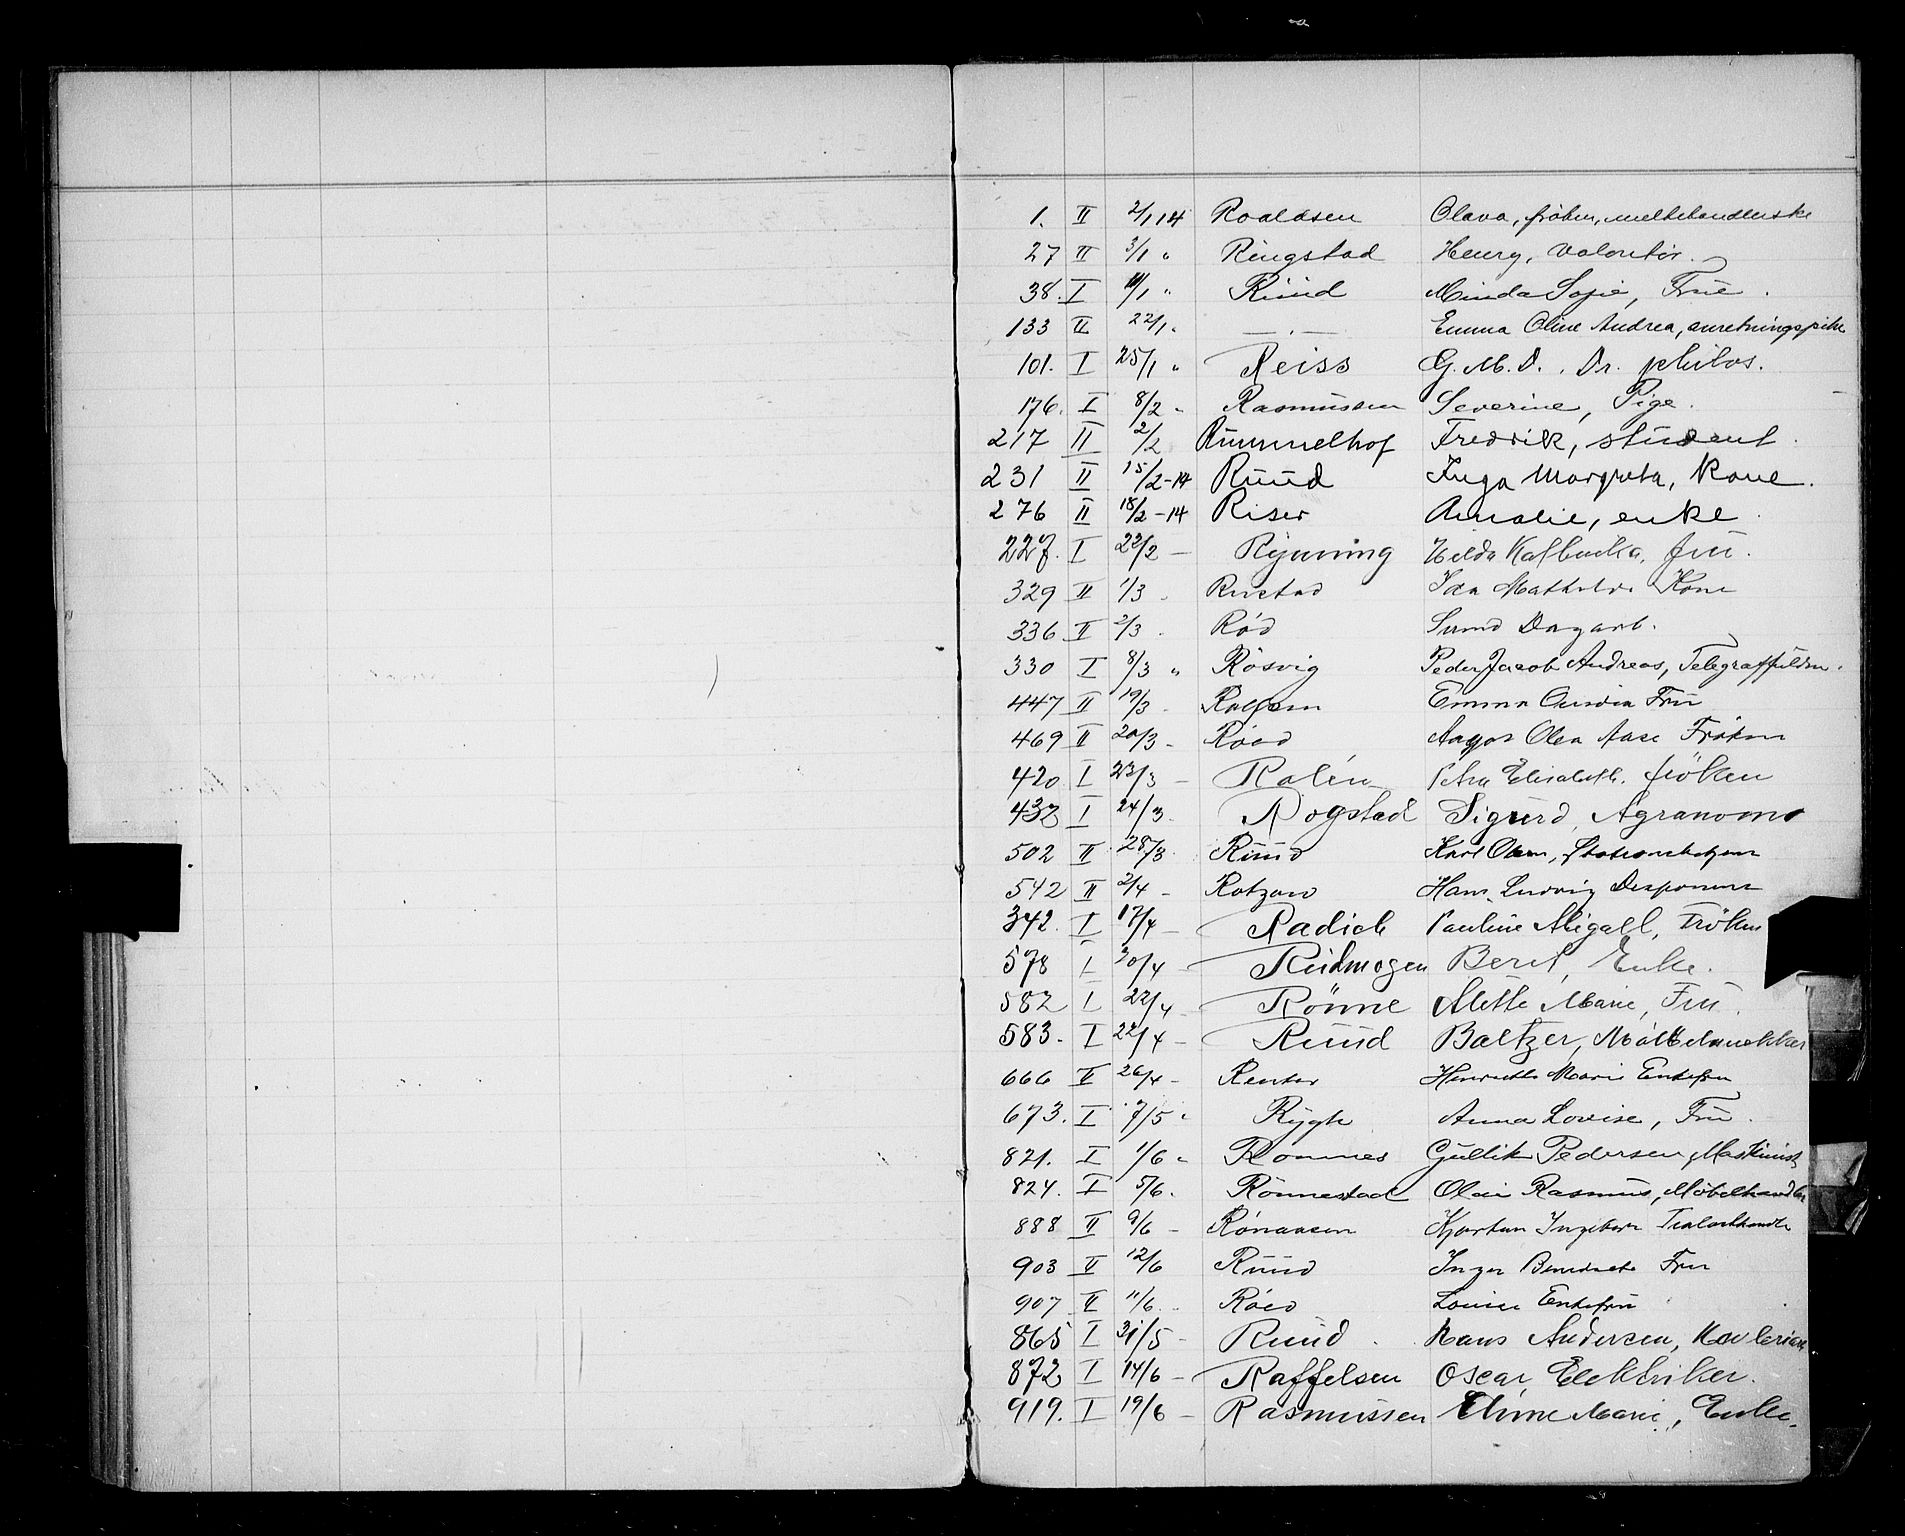 1. II 2/1 14 Roaldsen Olava, frøken,
27 II 3/1 " Ringstad Henry, Volontør.
38. I 11/1 " Ruud Minda Sofie, Frue.
133 II 22/1 " — " — Emma Oline Andrea,
101. I 25/1 " Reiss G. M. D. Dr. philos.
176. I 8/2 - Rasmussen Severine, Pige.
217 II 2/2 Rummelhof Fredrik, student.
231 II 15/2-14 Ruud Inga Margreta, Kone.
276 II 18/2-14 Riser Amalie, enke
227. I 22/2 — Rynning Hilda, fru.
329 II 1/3 - Rustad Ida Mathilde Kone
336 II 2/3 - Rød Dagarb.
330 I 8/3 " Røsvig Peder Jacob Andreas,
447 II 19/3 - Emma Fru
469 II 20/3 - Røed Olea Aase Frøken
420 I 23/3 — Rolén Petra Elisabeth. frøken
432 I 24/3 - Rogstad Sigurd, Agronom
502 II 28/3 Ruud Karl Olsen,
542 II 2/4 - Rotzow Hans Ludvig
342. I 17/4 — Radich Pauline Abigael, Frøken
578 I 20/4 - Rudmogen Berit, Enke.
582 I 22/4 - Rönne Mette Marie, Fru.
583. I 22/4 — Ruud Baltzer,
666 II 26/4 - Renter Henriette Marie Enkefru
673. I 7/5 " Rygh Anna Lovise, Fru.
821. I 1/6 - Rommes Gullik Pedersen, Maskinist
824. I 5/6. Rönnestad Olai Rasmus, Möbelhandler
888 II 9/6 - Rønaasen Kjersten Ingeborg
903 II 12/6 Ruud Inger Benedicte Fru
907 II 11/6 - Røed Louise Enkefru
865 I 31/5 - Ruud. Hans Andersen,
872 I 14/6 — Raffelsen Oscar, Elektriker.
919. I 19/6 — Rasmussen Marie, Enke.